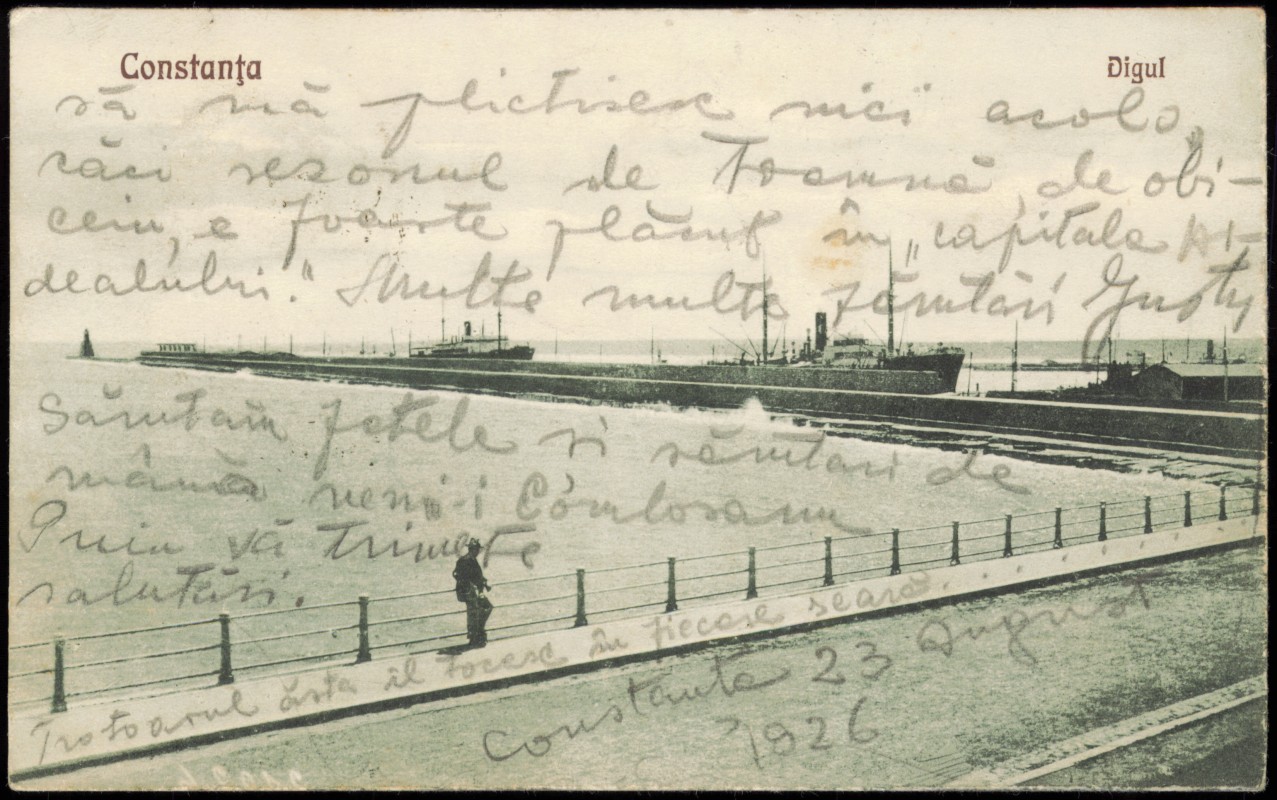 Constanța
Digul
să mă plictisesc nici acolo,
căci sezonul de toamnă, de obi-
ceiu, e foarte plăcut în „capitala Ar-
dealului." Multe multe sărutări Gusty
Sărutăm fetele si sărutari de
mână nenii-i Comlosanu
Puiu vă trimete
salutări.
Trotoarul ăsta îl tocesc în fiecare seară....
Constanta 23 August
1926